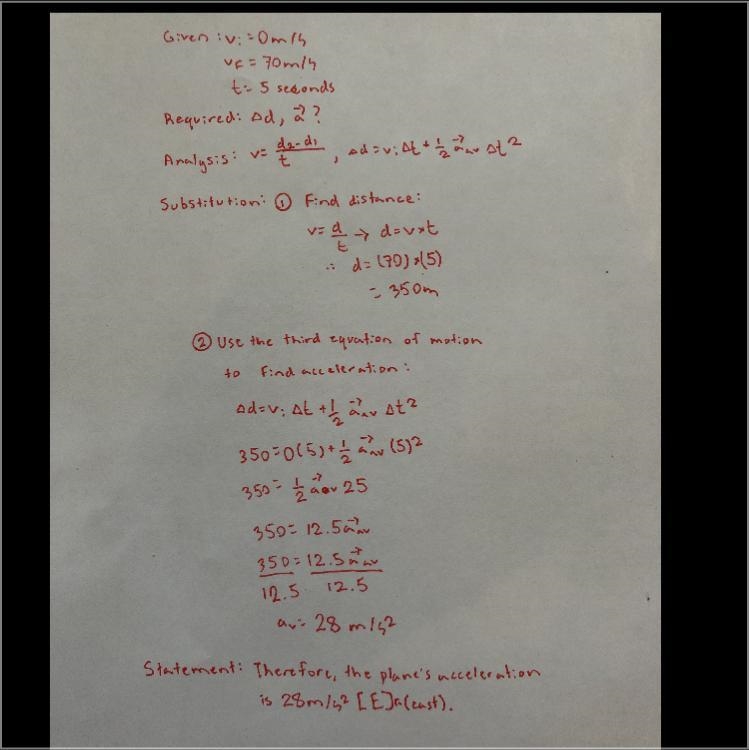 Given: vi = 0m/s
vF = 70m/s
t = 5 seconds
Required: Δd, a⃗ ?
Analysis: v = d2-d1/t , Δd = vi Δt + 1/2 a⃗av Δt²
Substitution: ① Find distance:
v = d/t → d = v×t
∴ d = (70)×(5)
= 350m
② Use the third equation of motion
to find acceleration:
Δd = vi Δt + 1/2 a⃗av Δt²
350 = 0(5) + 1/2 a⃗av (5)²
350 = 1/2 a⃗av 25
350 = 12.5 a⃗av
350 = 12.5 a⃗av
12.5 12.5
av = 28 m/s²
Statement: Therefore, the plane's acceleration
is 28m/s² [E] (east).